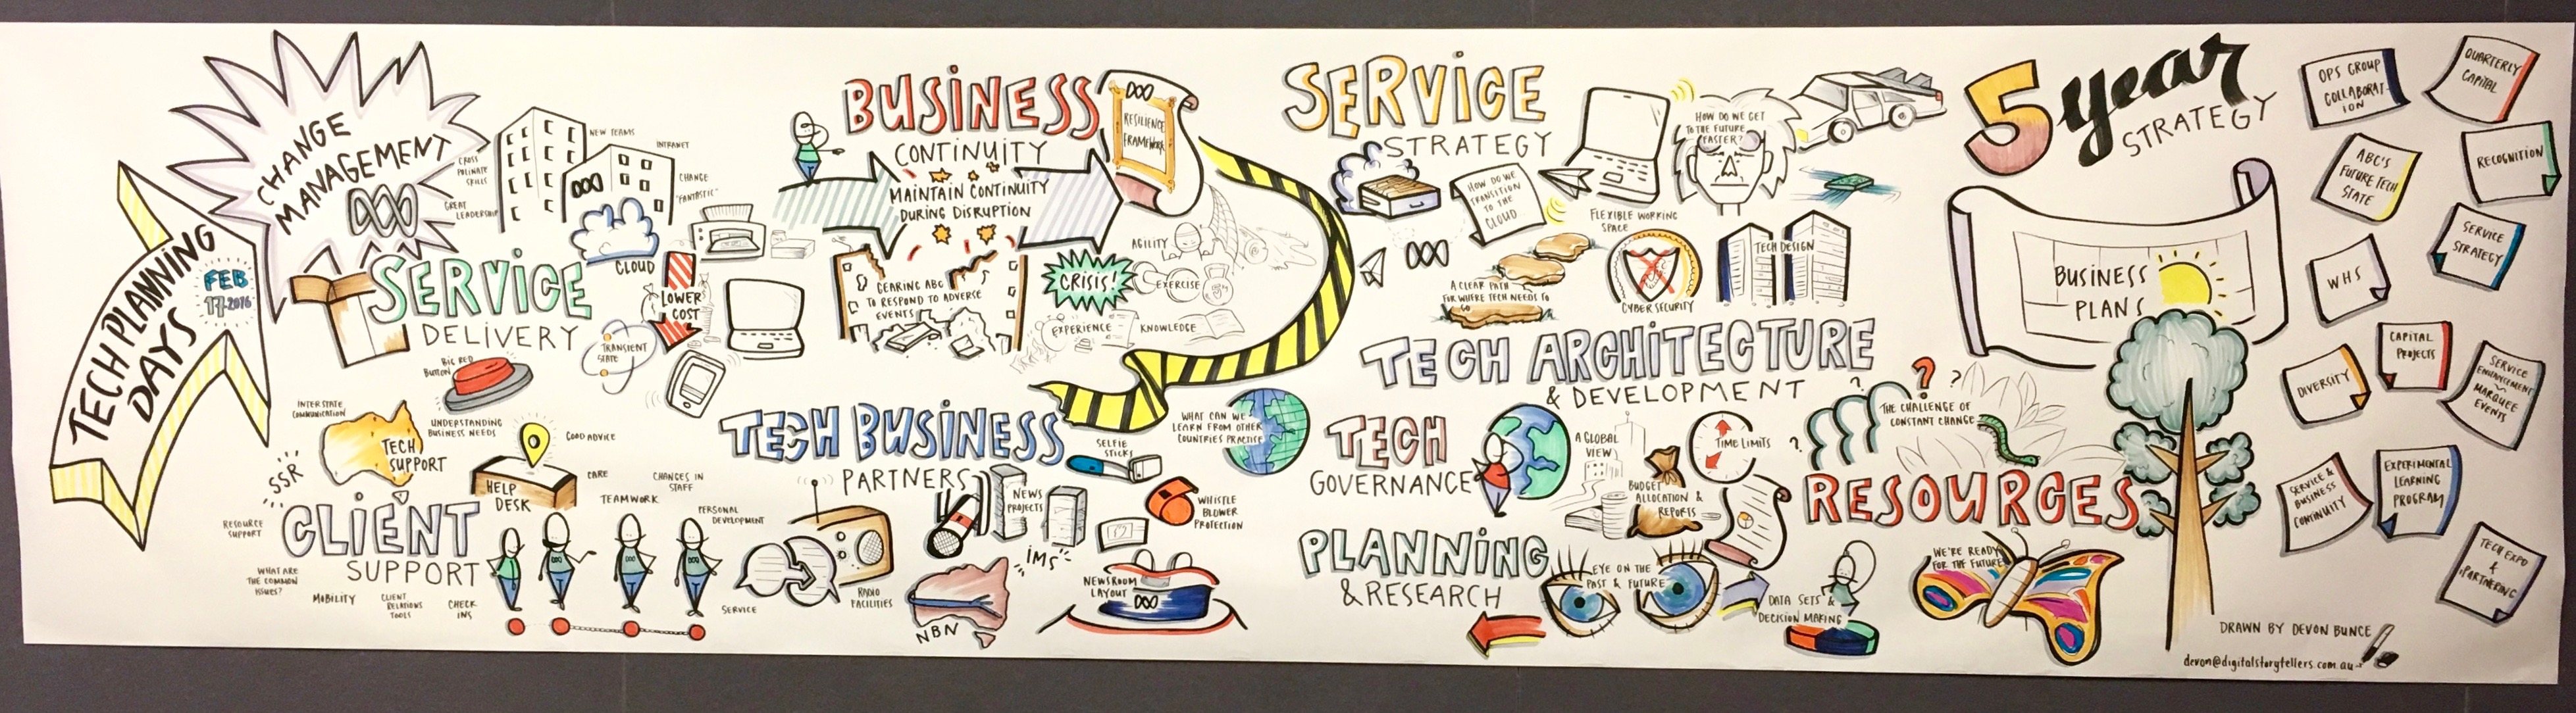 TECH PLANNING
DAYS
FEB
17 2016
CHANGE
MANAGEMENT
CROSS
POLINATE
SKILLS
GREAT
LEADERSHIP
NEW TEAMS
INTRANET
CHANGE
"FANTASTIC"
SERVICE
DELIVERY
CLOUD
LOWER
COST
TRANSIENT
STATE
BIG RED
BUTTON
INTERSTATE
COMMUNICATION
TECH
SUPPORT
UNDERSTANDING
BUSINESS NEEDS
GOOD ADVICE
SSR
HELP
DESK
CARE
TEAMWORK
CHANGES IN
STAFF
PERSONAL
DEVELOPMENT
CLIENT
SUPPORT
RESOURCE
SUPPORT
WHAT ARE
THE COMMON
ISSUES?
MOBILITY
CLIENT
RELATIONS
TOOLS
CHECK
INS
SERVICE
BUSINESS
CONTINUITY
MAINTAIN CONTINUITY
DURING DISRUPTION
RESILIENCE
FRAMEWORK
GEARING ABC
TO RESPOND TO ADVERSE
EVENTS
CRISIS!
AGILITY
EXERCISE
EXPERIENCE
KNOWLEDGE
TECH BUSINESS
PARTNERS
WHAT CAN WE
LEARN FROM OTHER
COUNTRIES PRACTISE
SELFIE
STICK!
NEWS
PROJECTS
WHISTLE
BLOWER
PROTECTION
IMS
RADIO
FACILITIES
NBN
NEWSROOM
LAYOUT
SERVICE
STRATEGY
HOW DO WE
TRANSITION
TO THE
CLOUD
HOW DO WE GET
TO THE FUTURE
FASTER?
FLEXIBLE WORKING
SPACE
A CLEAR PATH
FOR WHERE TECH NEEDS TO
GO
CYBER SECURITY
TECH DESIGN
TECH ARCHITECTURE
& DEVELOPMENT
TECH
GOVERNANCE
A GLOBAL
VIEW
TIME LIMITS
BUDGET
ALLOCATION &
REPORTS
PLANNING
& RESEARCH
EYE ON THE
PAST & FUTURE
DATA SETS &
DECISION MAKING
THE CHALLENGE OF
CONSTANT CHANGE
RESOURCES
WE'RE READY
FOR THE FUTURE
5 year
STRATEGY
BUSINESS
PLANS
OPS GROUP
COLLABORAT-
ION
QUARTERLY
CAPITAL
ABC'S
FUTURE TECH
STATE
RECOGNITION
SERVICE
STRATEGY
WHS
DIVERSITY
CAPITAL
PROJECTS
SERVICE
ENHANCEMENT
MARQUEE
EVENTS
SERVICE &
BUSINESS
CONTINUITY
EXPERIMENTAL
LEARNING
PROGRAM
TECH EXPO
& PARTNERING
DRAWN BY DEVON BUNCE
devon@digitalstorytellers.com.au